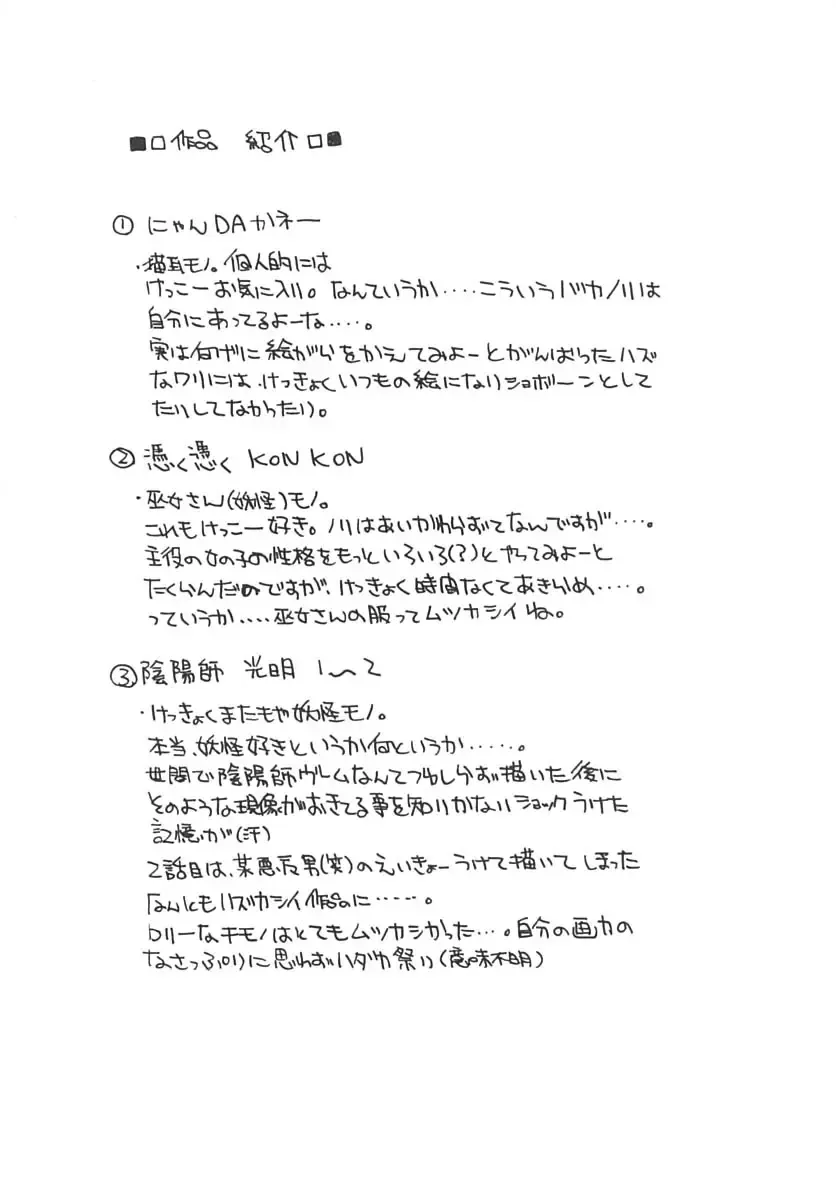 ■□作品 紹介□■
① にゃんDAかネー
・猫耳モノ。個人的には
けっこーお気に入り。なんていうか‥‥こういうバカノリは
自分にあってるよーな‥‥。
実は何げに絵がらをかえてみよーとがんばったハズ
なワリには、けっきょくいつもの絵になりショボーンとして
たりしてなかったり。
② 憑く憑く KON KON
・巫女さん(妖怪)モノ。
これもけっこー好き。ノリはあいかわらずてなんですが‥‥。
主役の女の子の性格をもっといろいろ(?)とやってみよーと
たくらんだのですが、けっきょく時間なくてあきらめ‥‥。
っていうか‥‥巫女さんの服ってムツカシイね。
③ 陰陽師 光明 1〜2
・けっきょくまたもや妖怪モノ。
本当、妖怪好きというか何というか‥‥‥。
世間で陰陽師ヴームなんてつゆしらず描いた後に
そのような現像がおきてる事を知りかないりショックうけた
記憶が(汗)
2話目は、某悪反男(笑)のえいきょーうけて描いてしまった
なんともハズカシイ作品に‥‥‥。
ロリーなキモノはとてもムツカシかった‥‥。自分の画力の
なさっぷりに思わずハダカ祭り(意味不明)